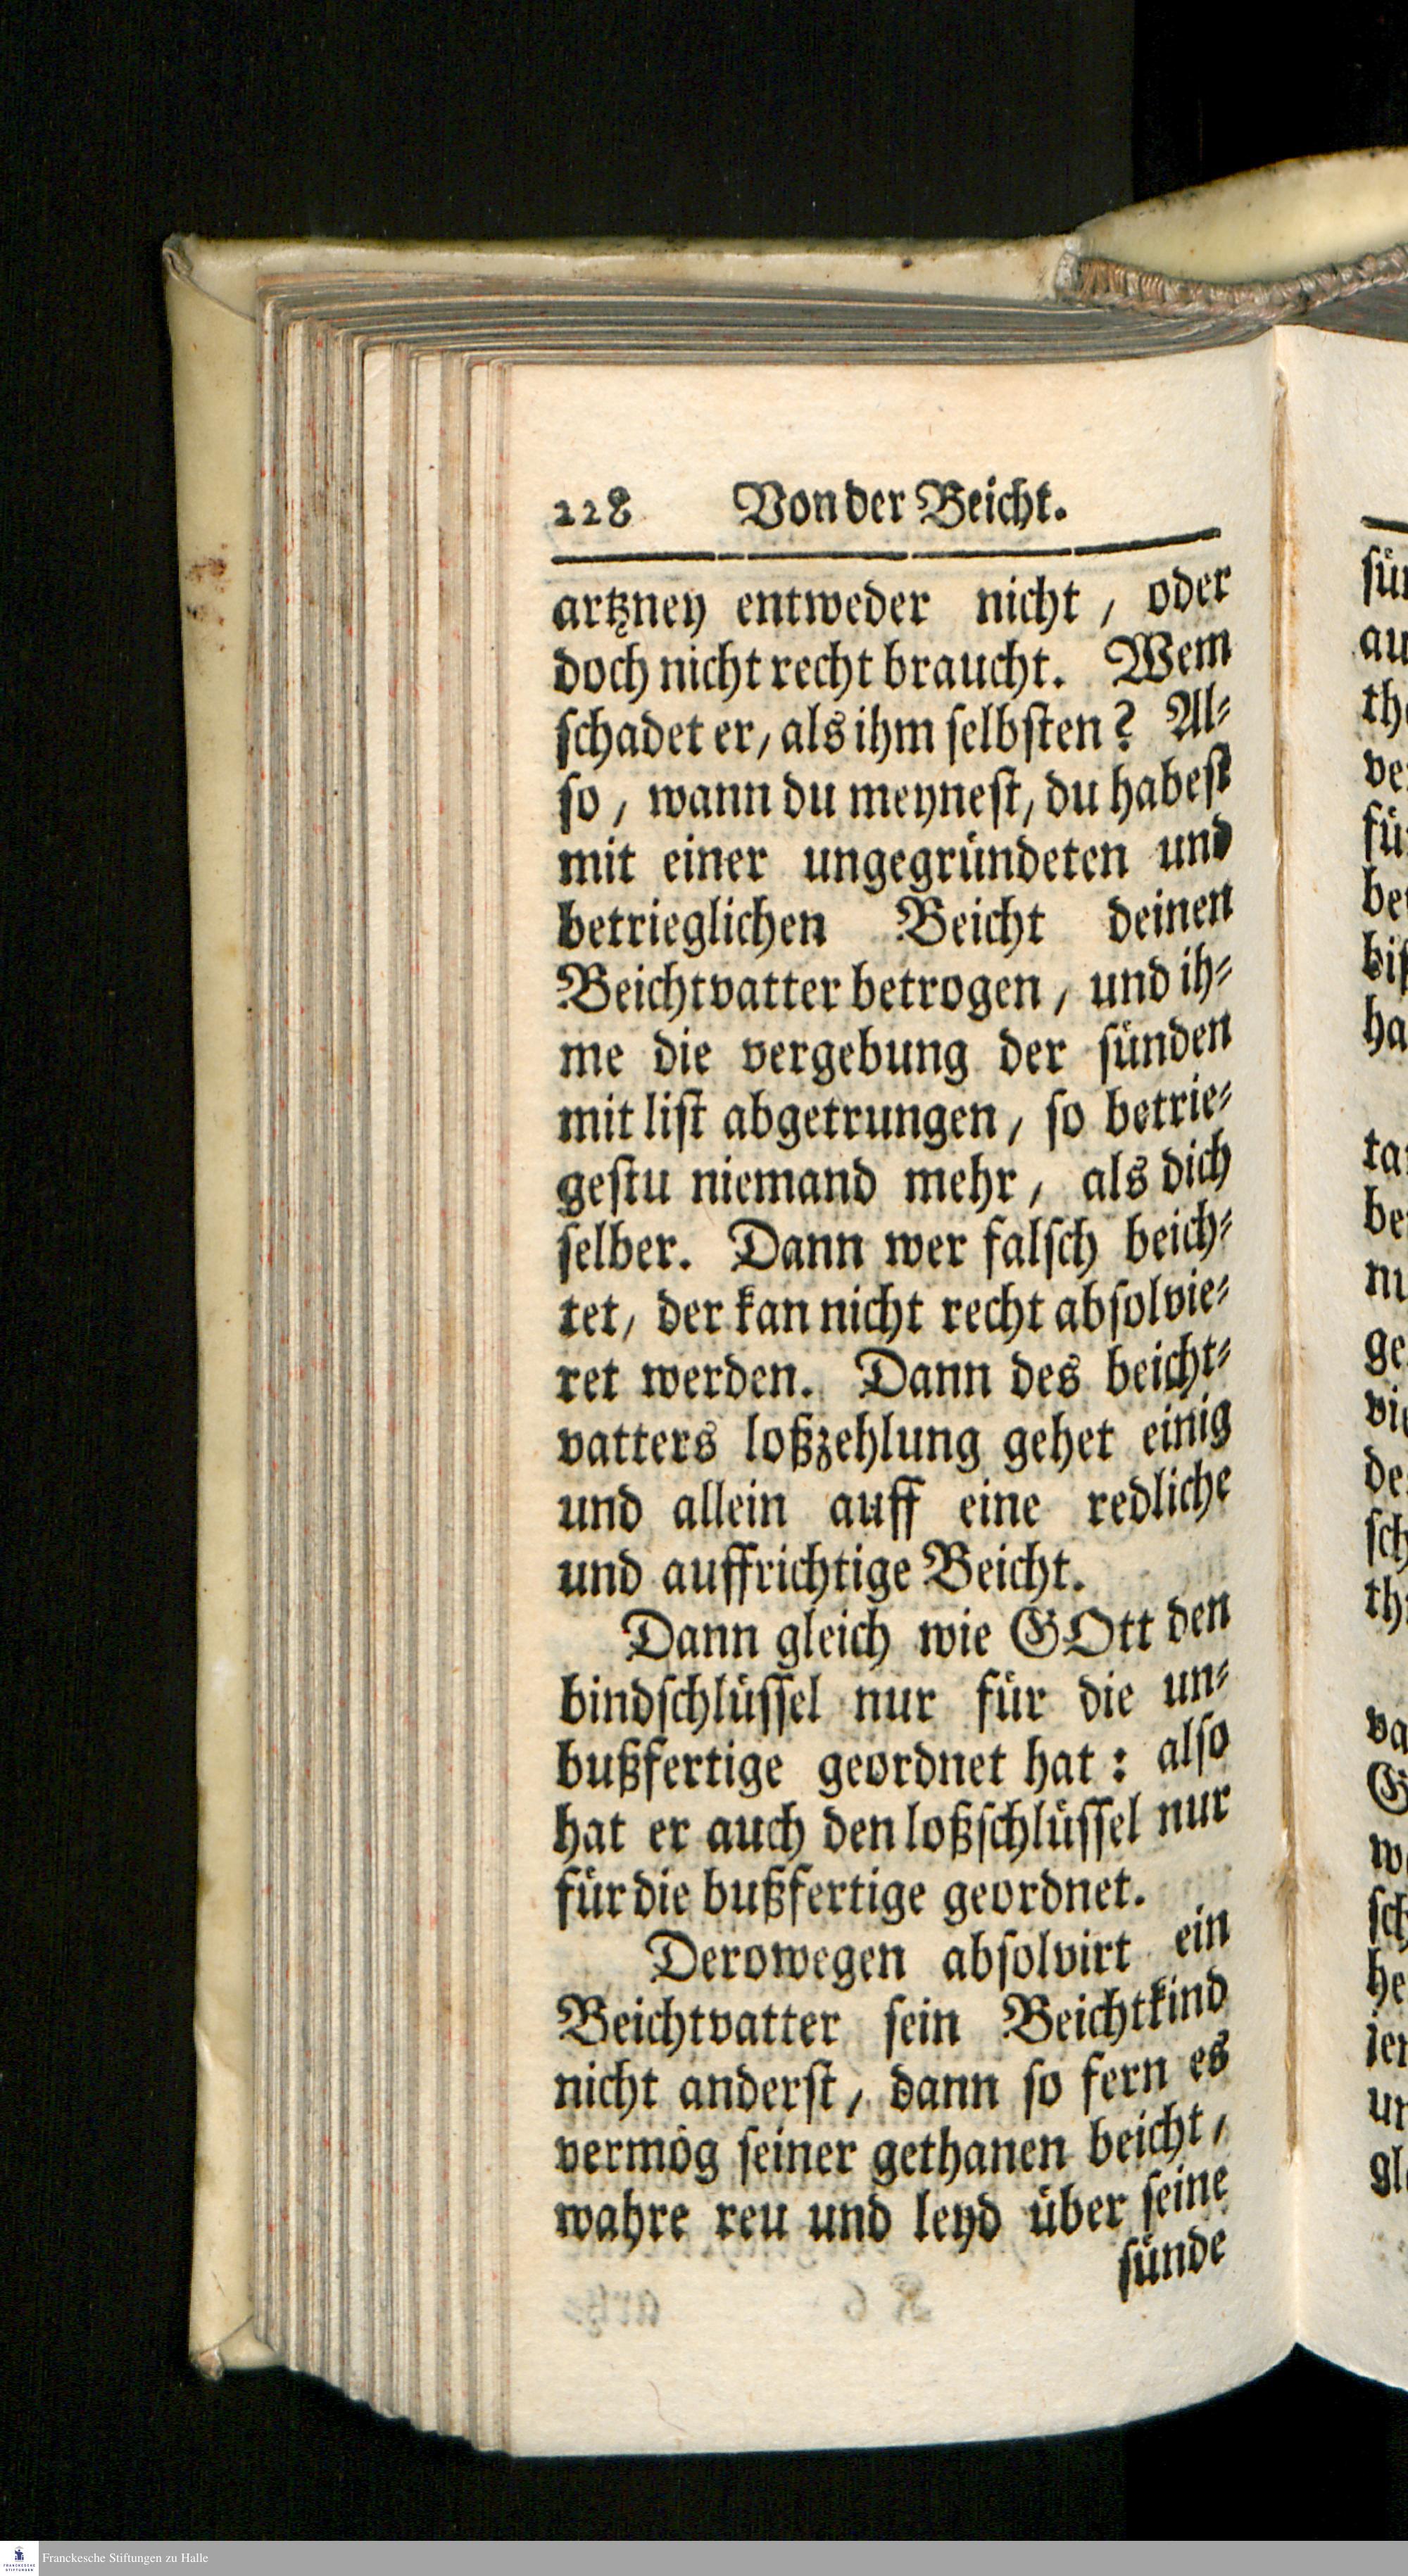 228 Von der Beicht.
artzney entweder nicht / oder
doch nicht recht braucht. Wem
schadet er / als ihm selbsten? Al⸗
so / wann du meynest / du habest
mit einer ungegründeten und
betrieglichen Beicht deinen
Beichtvatter betrogen / und ih⸗
me die vergebung der sünden
mit list abgetrungen / so betrie⸗
gestu niemand mehr / als dich
selber. Dann wer falsch beich⸗
tet / der kan nicht recht absolvie⸗
ret werden. Dann des beicht⸗
vatters loßzehlung gehet einig
und allein auff eine redliche
und auffrichtige Beicht.
Dann gleich wie GOtt den
bindschlüssel nur für die un⸗
bußfertige geordnet hat: also
hat er auch den loßschlüssel nur
für die bußfertige geordnet.
Derowegen absolvirt ein
Beichtvatter sein Beichtkind
nicht anderst / dann so fern es
vermög seiner gethanen beicht /
wahre reu und leyd über seine
sünde
Franckesche Stiftungen zu Halle